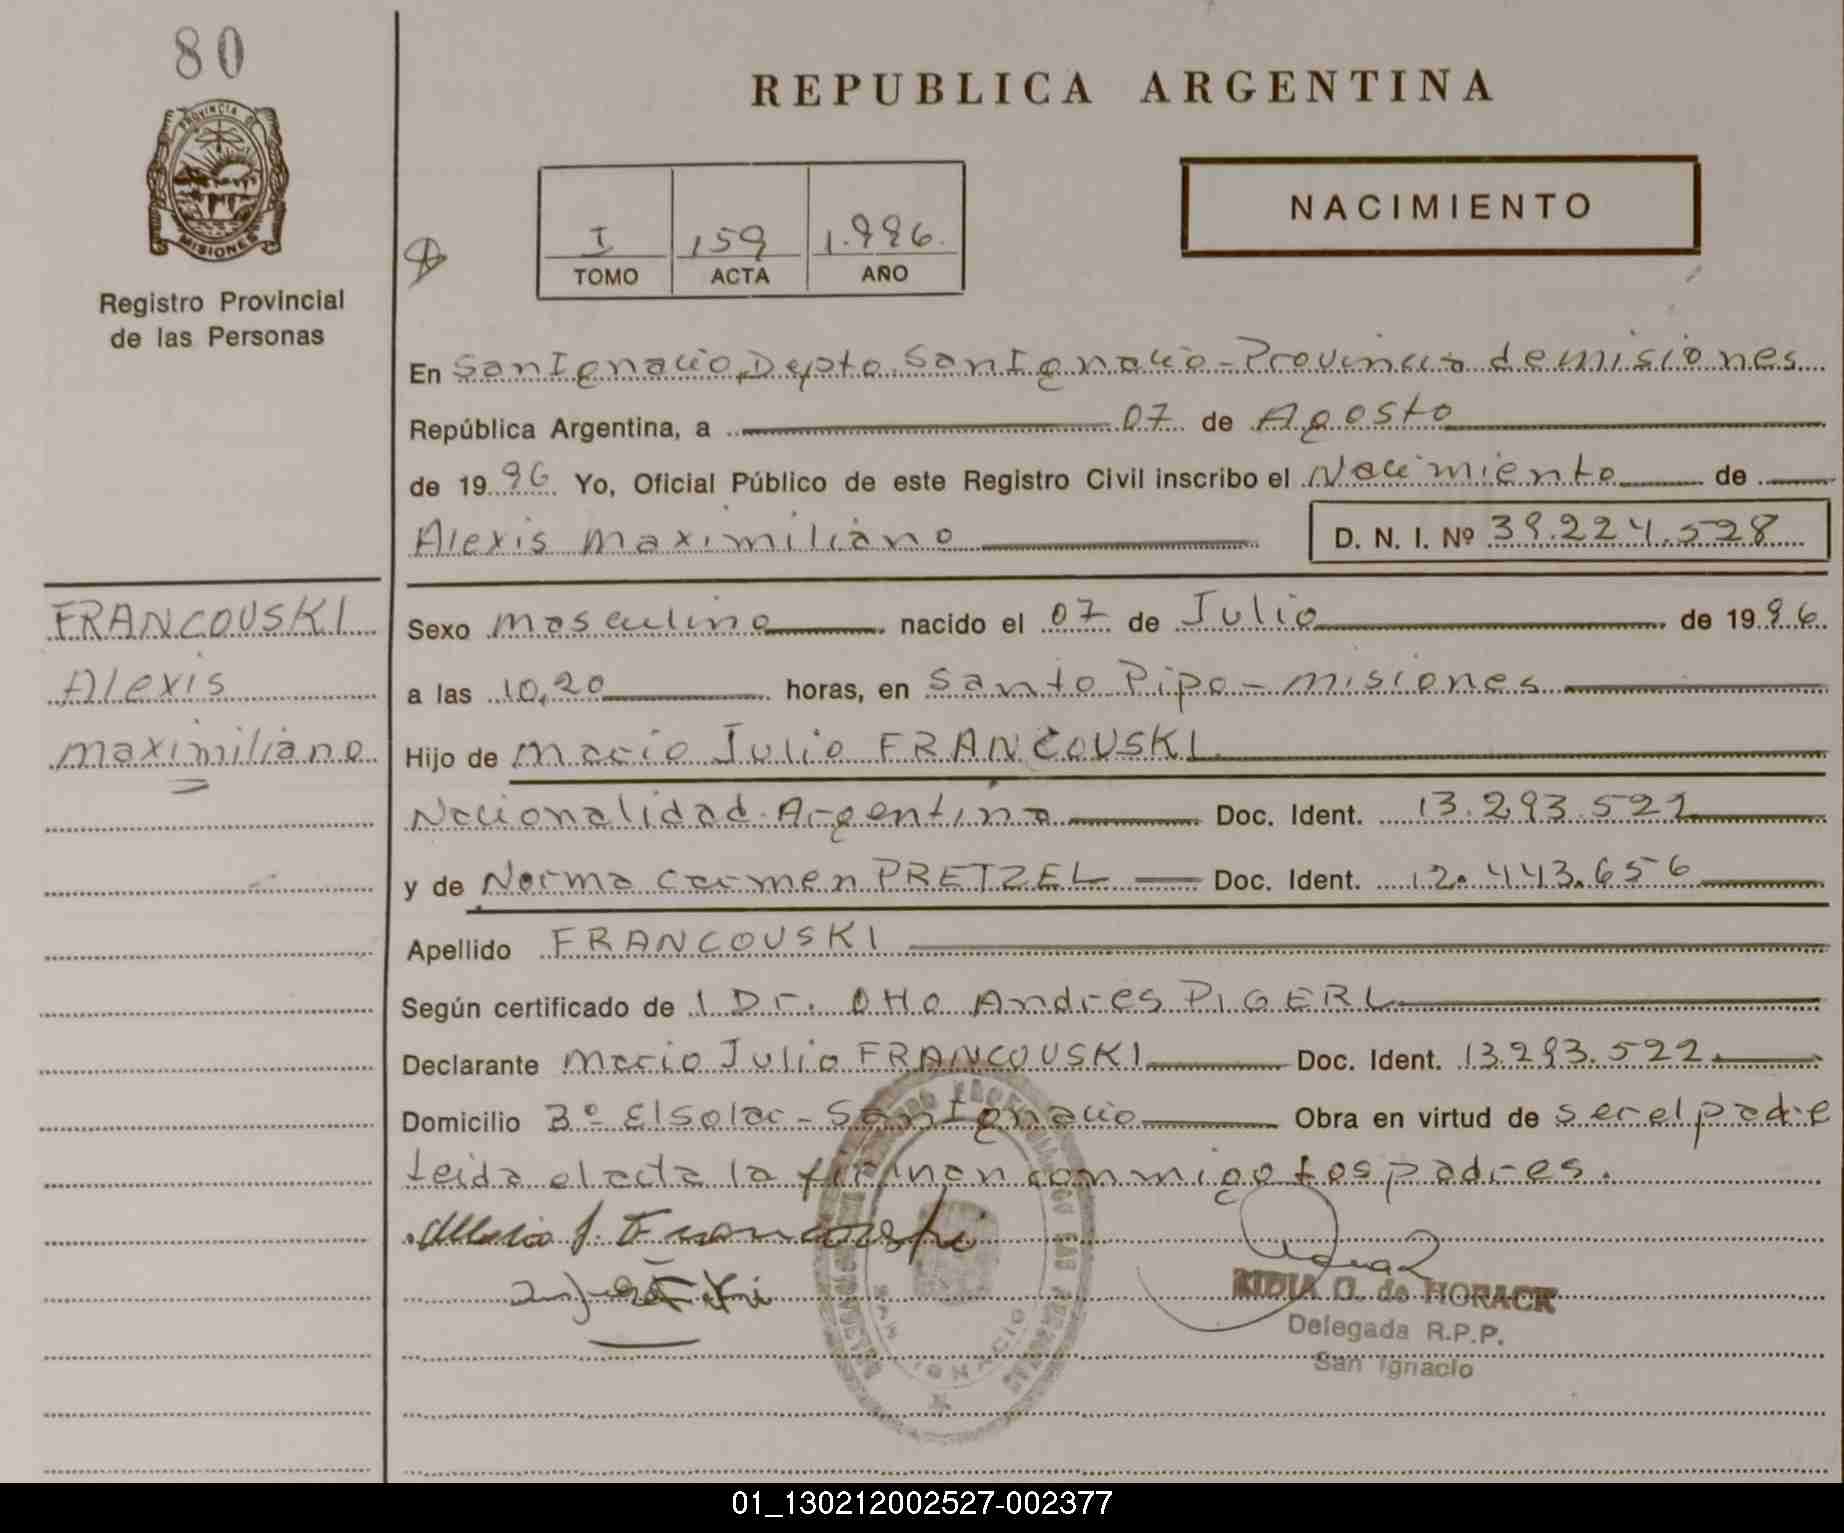 80
PROVINCIA DE
MISIONES
Registro Provincial
de las Personas
REPUBLICA ARGENTINA
NACIMIENTO
I 159 1.996.
TOMO ACTA AÑO
En San Ignacio, Depto San Ignacio - Provincia de misiones
República Argentina, a 07 de Agosto
de 1996 Yo, Oficial Público de este Registro Civil inscribo el Nacimiento de
Alexis maximiliano D. N. I. Nº 39.224.528
FRANCOUSKI
Alexis
maximiliano
Sexo masculino nacido el 07 de Julio de 1996
a las 10,20 horas, en Santo Pipo - misiones
Hijo de Mario Julio FRANCOUSKI
Nacionalidad Argentina Doc. Ident. 13.293.522
y de Norma Carmen PRETZEL Doc. Ident. 12.443.656
Apellido FRANCOUSKI
Según certificado de l Dr. Otto Andres PIGERL
Declarante Mario Julio FRANCOUSKI Doc. Ident. 13.293.522
Domicilio Bº El Solar - San Ignacio Obra en virtud de ser el padre
Leida el acta la firman conmigo los padres.
Mario J. Francouski
SAN IGNACIO
G. de HORACK
Delegada R.P.P.
San Ignacio
01_130212002527-002377